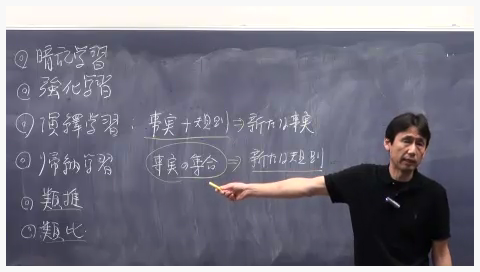 ◎ 暗記学習
◎ 強化学習
◎ 演繹学習 : 事実+規則⇒新たな事実
◎ 帰納学習 事実の集合⇒新たな規則
◎ 類推
◎ 類比